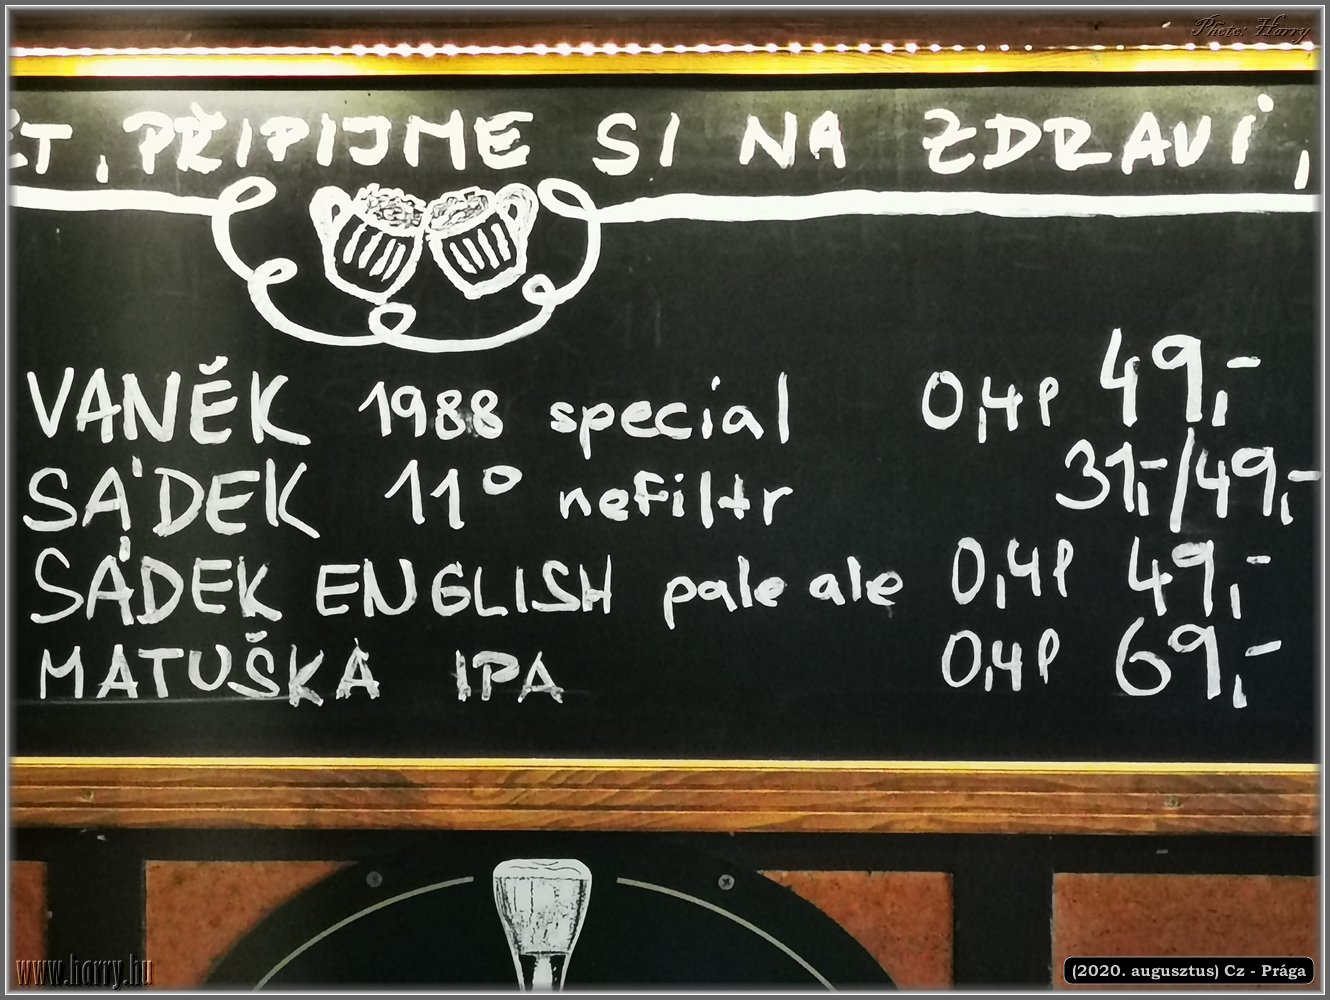 Photo: Harry
ĚT, PŘIPIJME SI NA ZDRAVÍ,
VANĚK 1988 special 0,4l 49,-
SÁDEK 11° nefiltr 31,-/49,-
SÁDEK ENGLISH pale ale 0,4l 49,-
MATUŠKA IPA 0,4l 69,-
www.harry.hu
(2020. augusztus) Cz - Prága